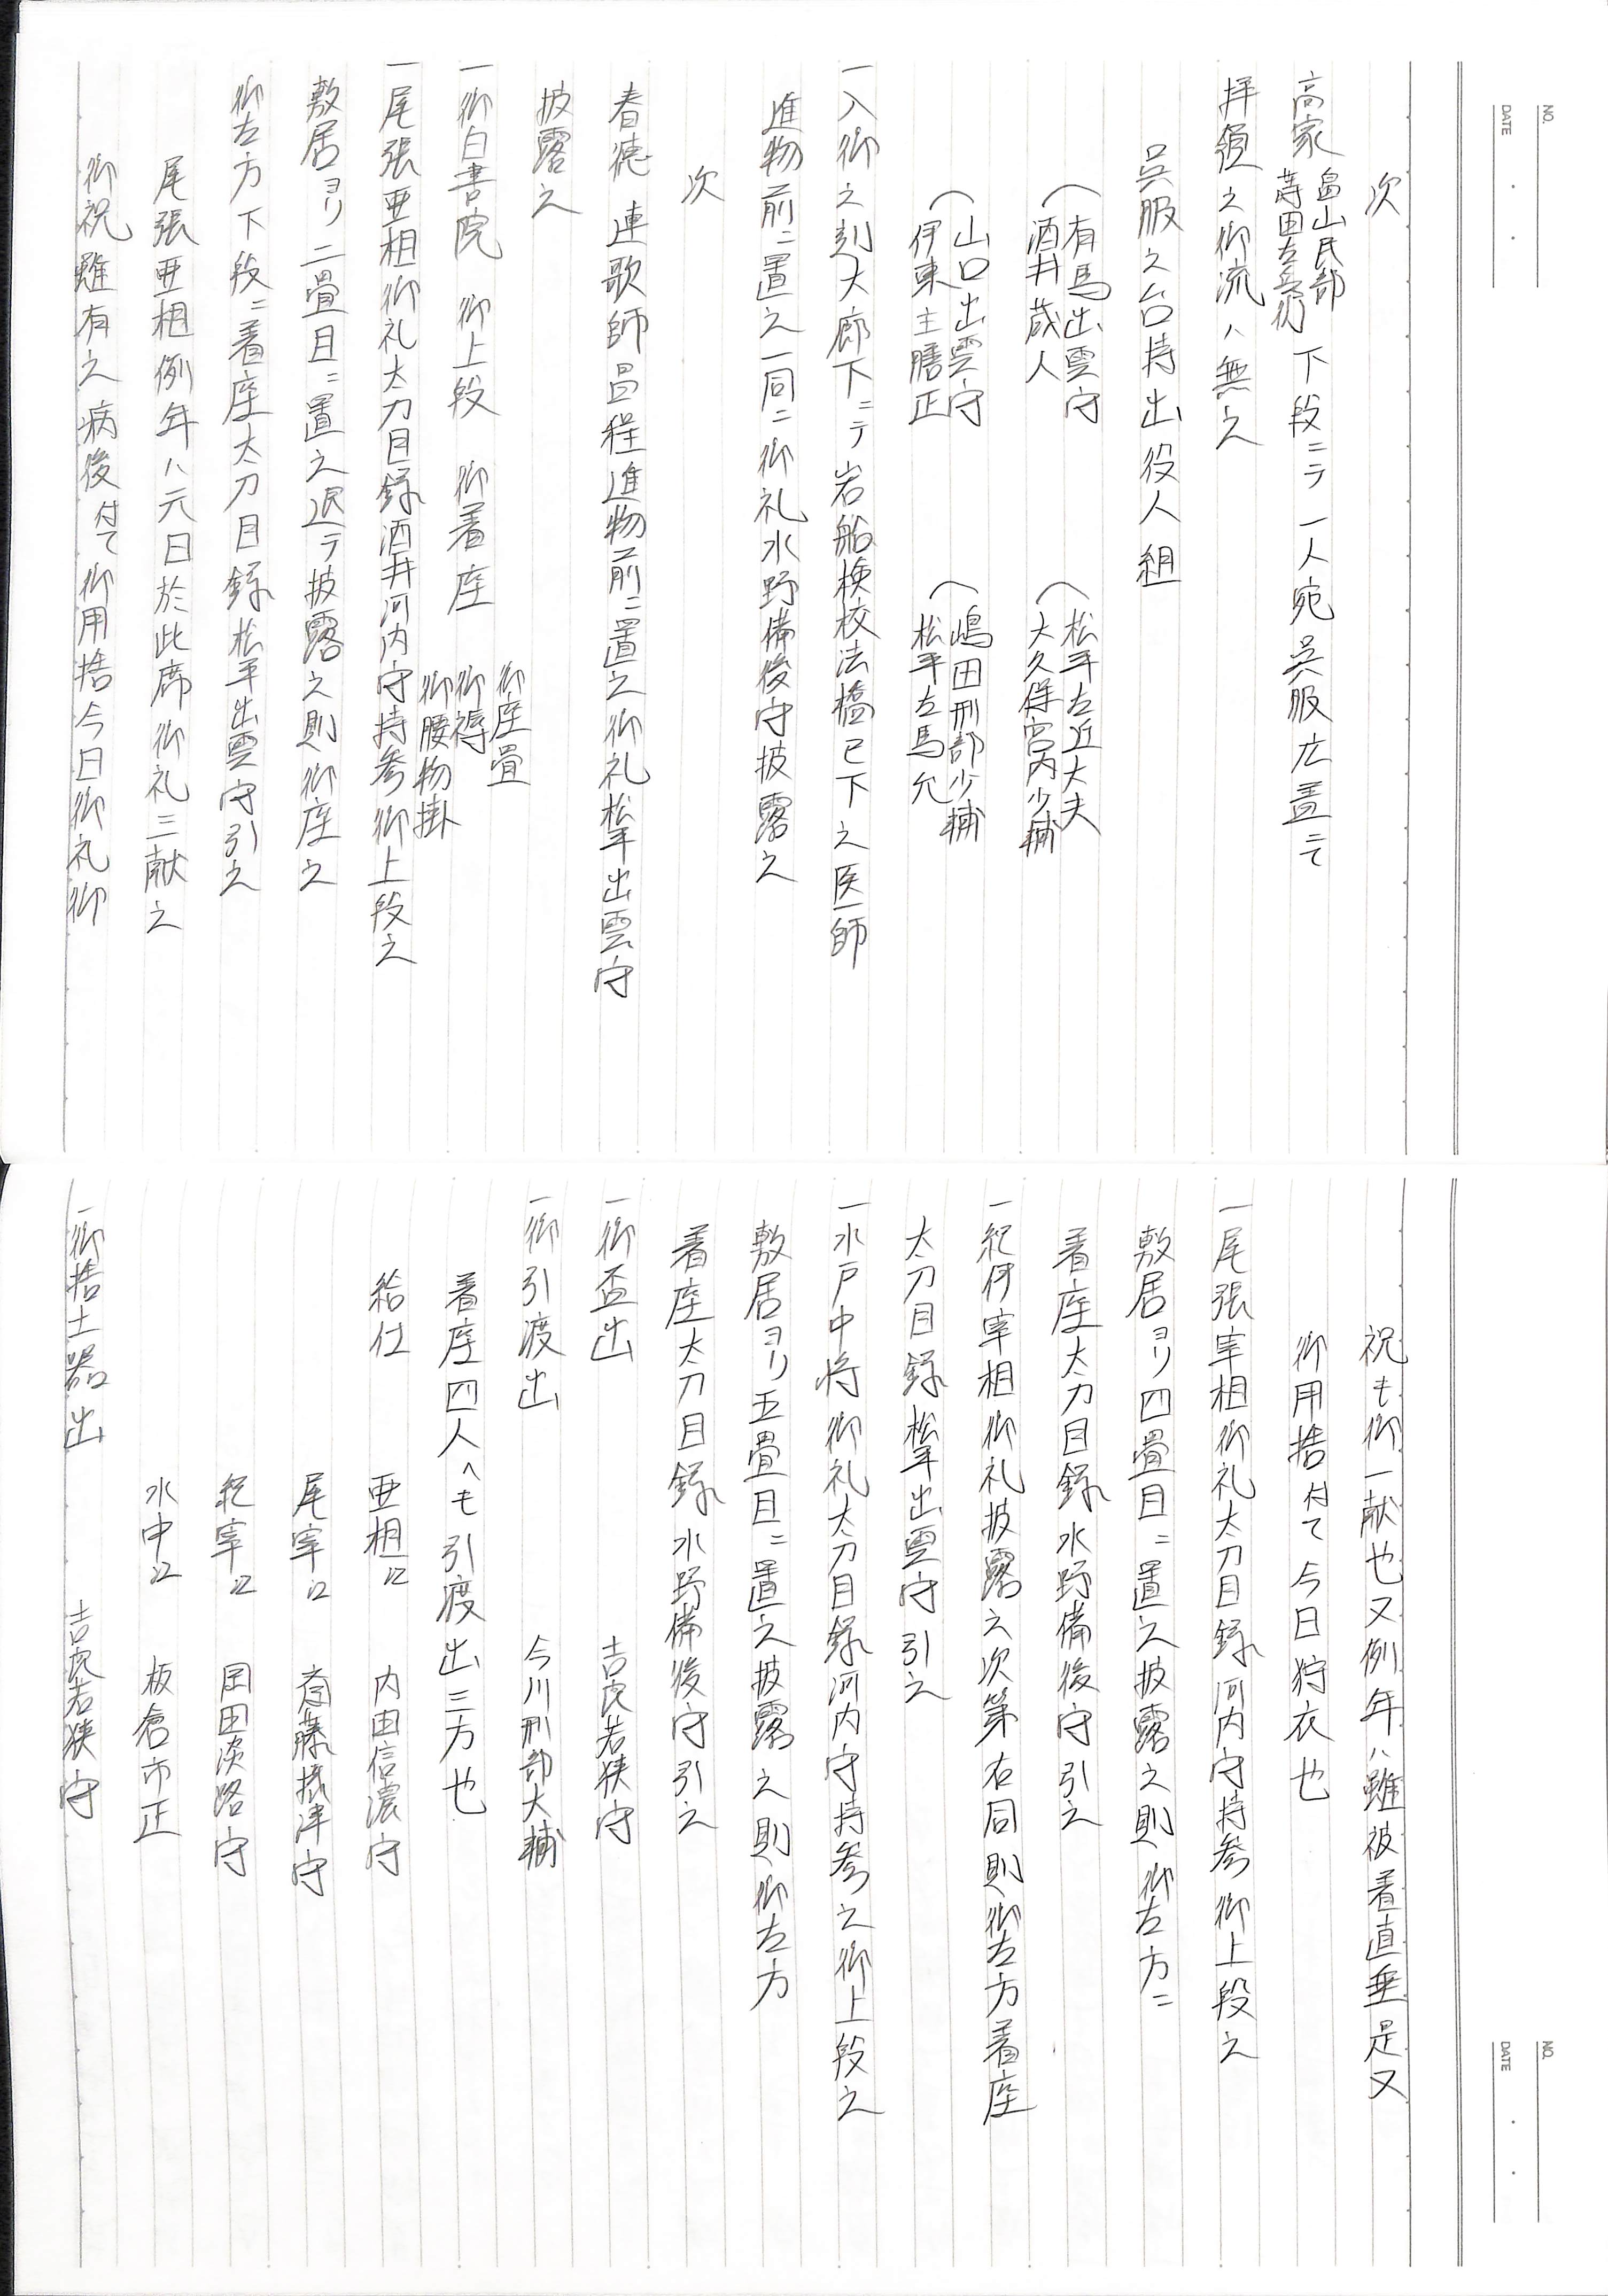 NO.
DATE
次
高家 畠山民部 蒔田左兵衛 下段ニテ 一人宛 呉服広蓋ニて
拝領之御流ハ無之
呉服之台持出役人組
有馬出雲守 松平左近大夫
酒井蔵人 大久保宮内少輔
山口出雲守 嶋田刑部少輔
伊東主膳正 松平左馬允
一入御之刻大廊下ニテ岩船検校法橋已下之医師
進物前ニ置之一同ニ御礼水野備後守披露之
次
春徳 連歌師昌程進物前ニ置之御礼松平出雲守
披露之
一御白書院 御上段 御着座 御座畳 御褥 御腰物掛
一尾張亜相御礼太刀目録酒井河内守持参御上段之
敷居ヨリ二畳目ニ置之退テ披露之則御座之
御左方下段ニ着座太刀目録松平出雲守引之
尾張亜相例年ハ元日於此席御礼三献之
御祝雖有之病後付て御用捨今日御礼御
NO.
DATE
祝も御一献也又例年ハ雖被着直垂是又
御用捨付て今日狩衣也
一尾張宰相御礼太刀目録河内守持参御上段之
敷居ヨリ四畳目ニ置之披露之則御左方ニ
着座太刀目録水野備後守引之
一紀伊宰相御礼披露之次第右同則御左方着座
太刀目録松平出雲守引之
一水戸中将御礼太刀目録河内守持参之御上段之
敷居ヨリ五畳目ニ置之披露之則御左方
着座太刀目録水野備後守引之
一御盃出 吉良若狭守
一御引渡出 今川刑部大輔
着座四人へも引渡出三方也
給仕 亜相江 内田信濃守
尾宰江 斎藤摂津守
紀宰江 岡田淡路守
水中江 板倉市正
一御捨土器出 吉良若狭守